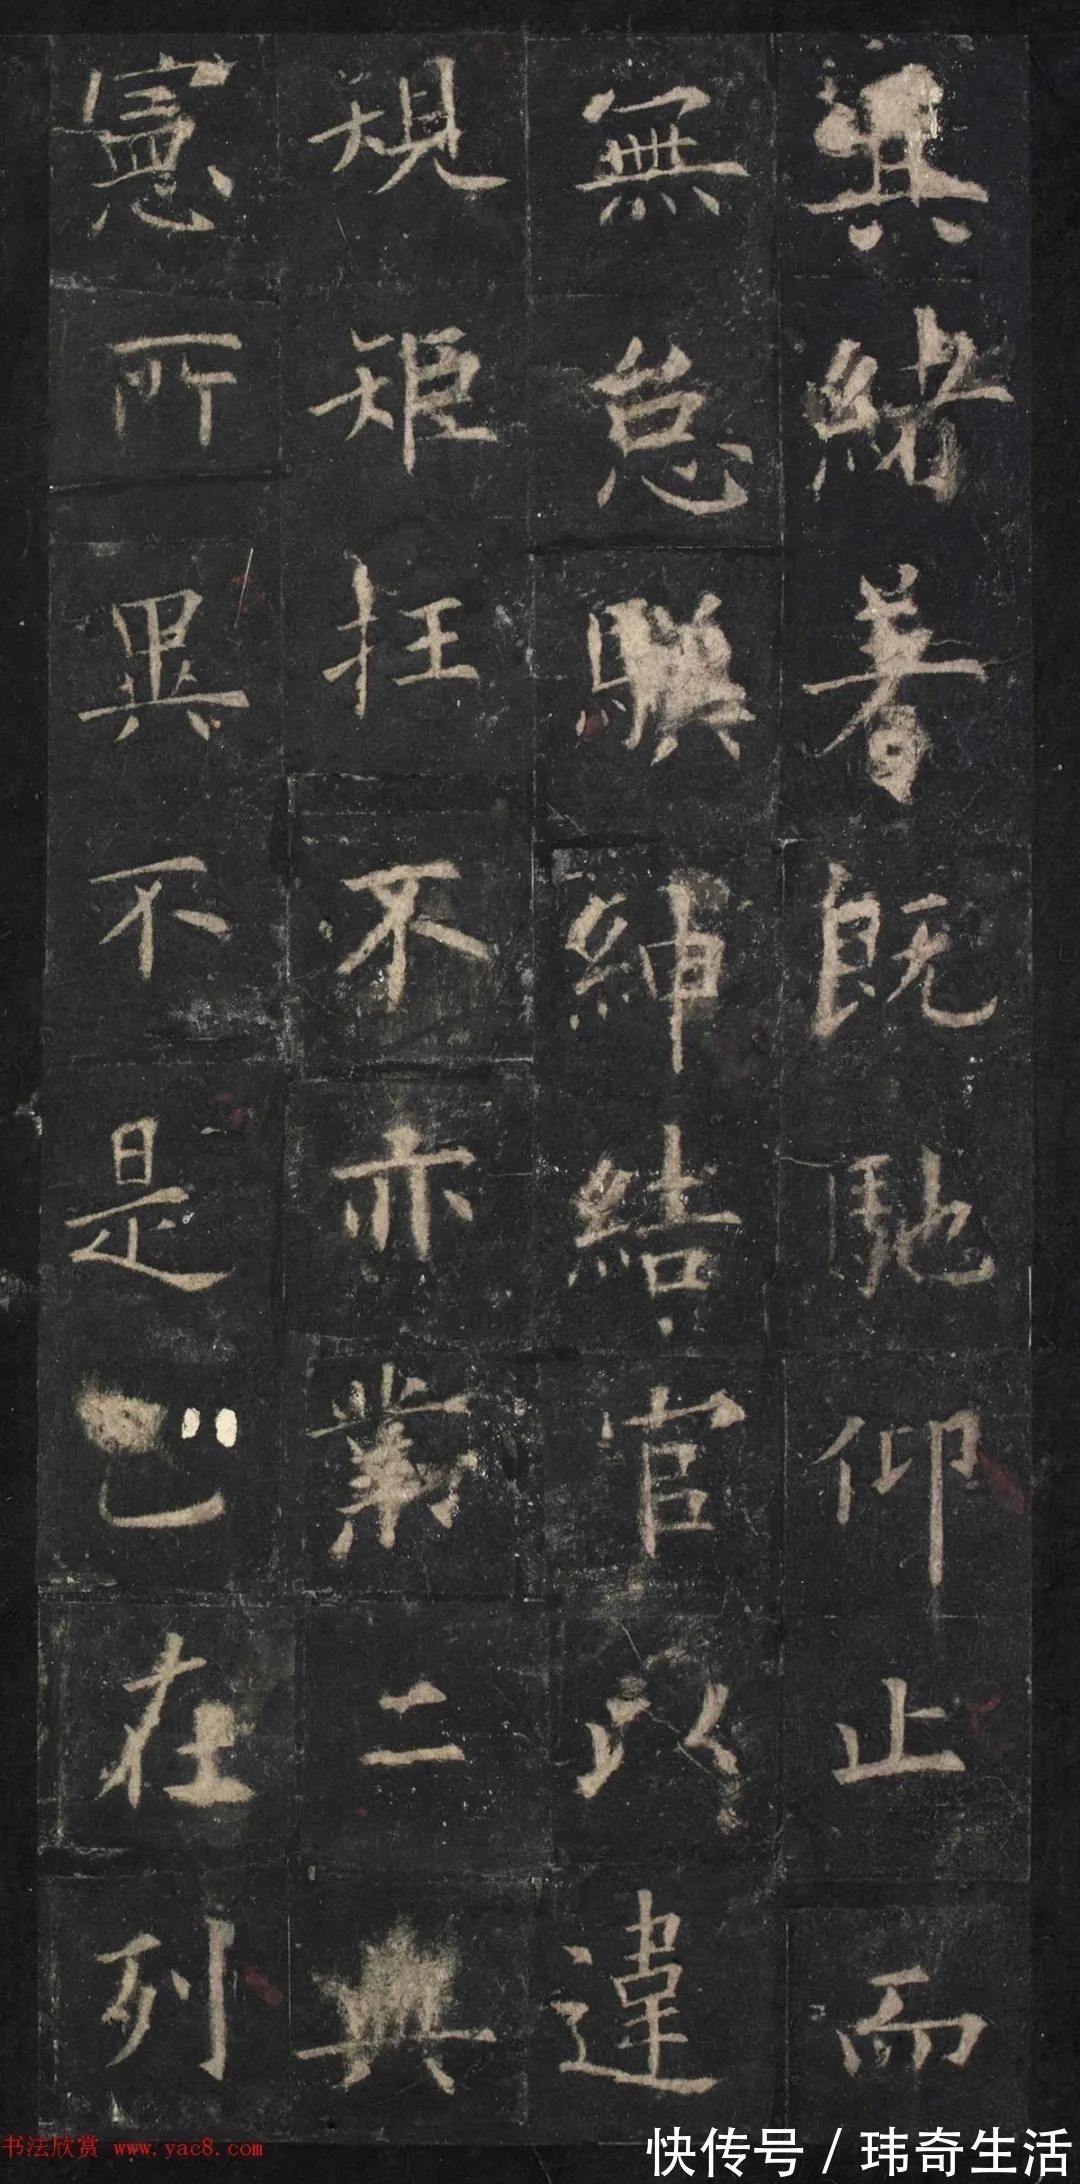 其緒著既馳仰止而
無怠紳結官以違
規矩抂不亦二典
憲所異不是在列
书法欣赏 www.yac8.com
快传号 / 玮奇生活